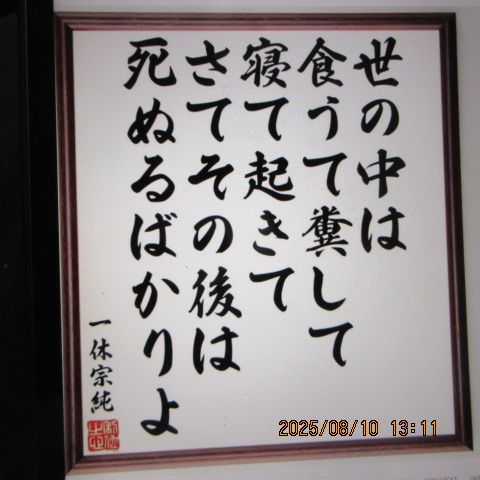 世の中は
食うて糞して
寝て起きて
さてその後は
死ぬるばかりよ
一休宗純
2025/08/10 13:11